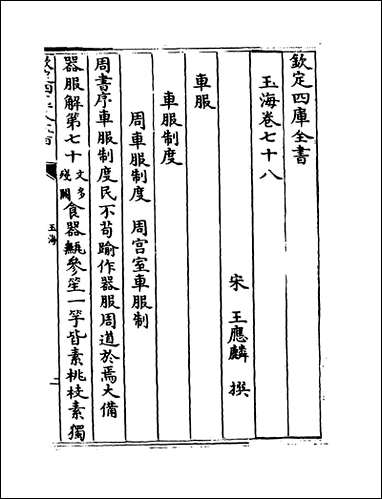 欽定四庫全書
玉海卷七十八
宋 王應麟 撰
車服
車服制度
周車服制度 周宫室車服制
周書序車服制度民不苟踰作器服周道於焉大備
器服解第七十文多殘闕食器甒參笙一竽皆素桃枝素獨
玉海